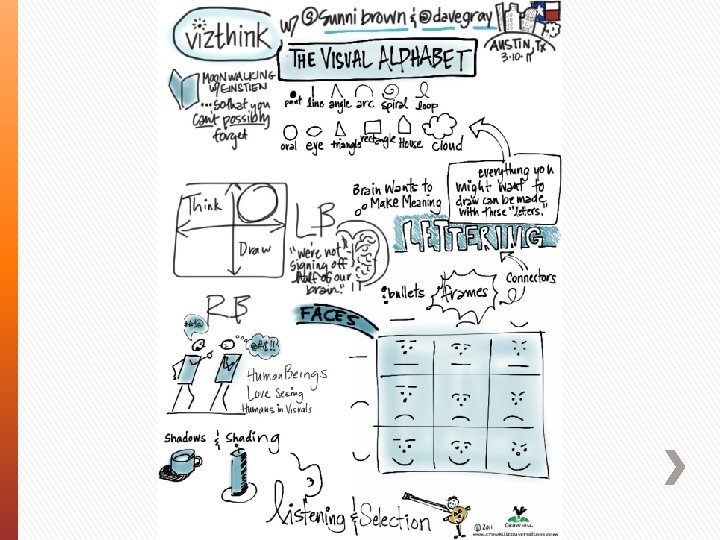 vizthink
w/ @sunnibrown & @davegray
THE VISUAL ALPHABET
AUSTIN, TX
3·10·11
MOONWALKING
W/EINSTIEN
...so that you
can't possibly
forget
point line angle arc spiral loop
oval eye triangle rectangle House cloud
everything you
might want to
draw can be made
with these "letters."
Brain Wants to
Make Meaning
LETTERING
Think
Draw
LB
"we're not
signing off
half of our
brain."
RB
Connectors
bullets
frames
FACES
@#$!!
Human Beings
Love Seeing
Humans in Visuals
Shadows & Shading
Listening & Selection
©2011
CROWHILL
www.crowhillconversations.com